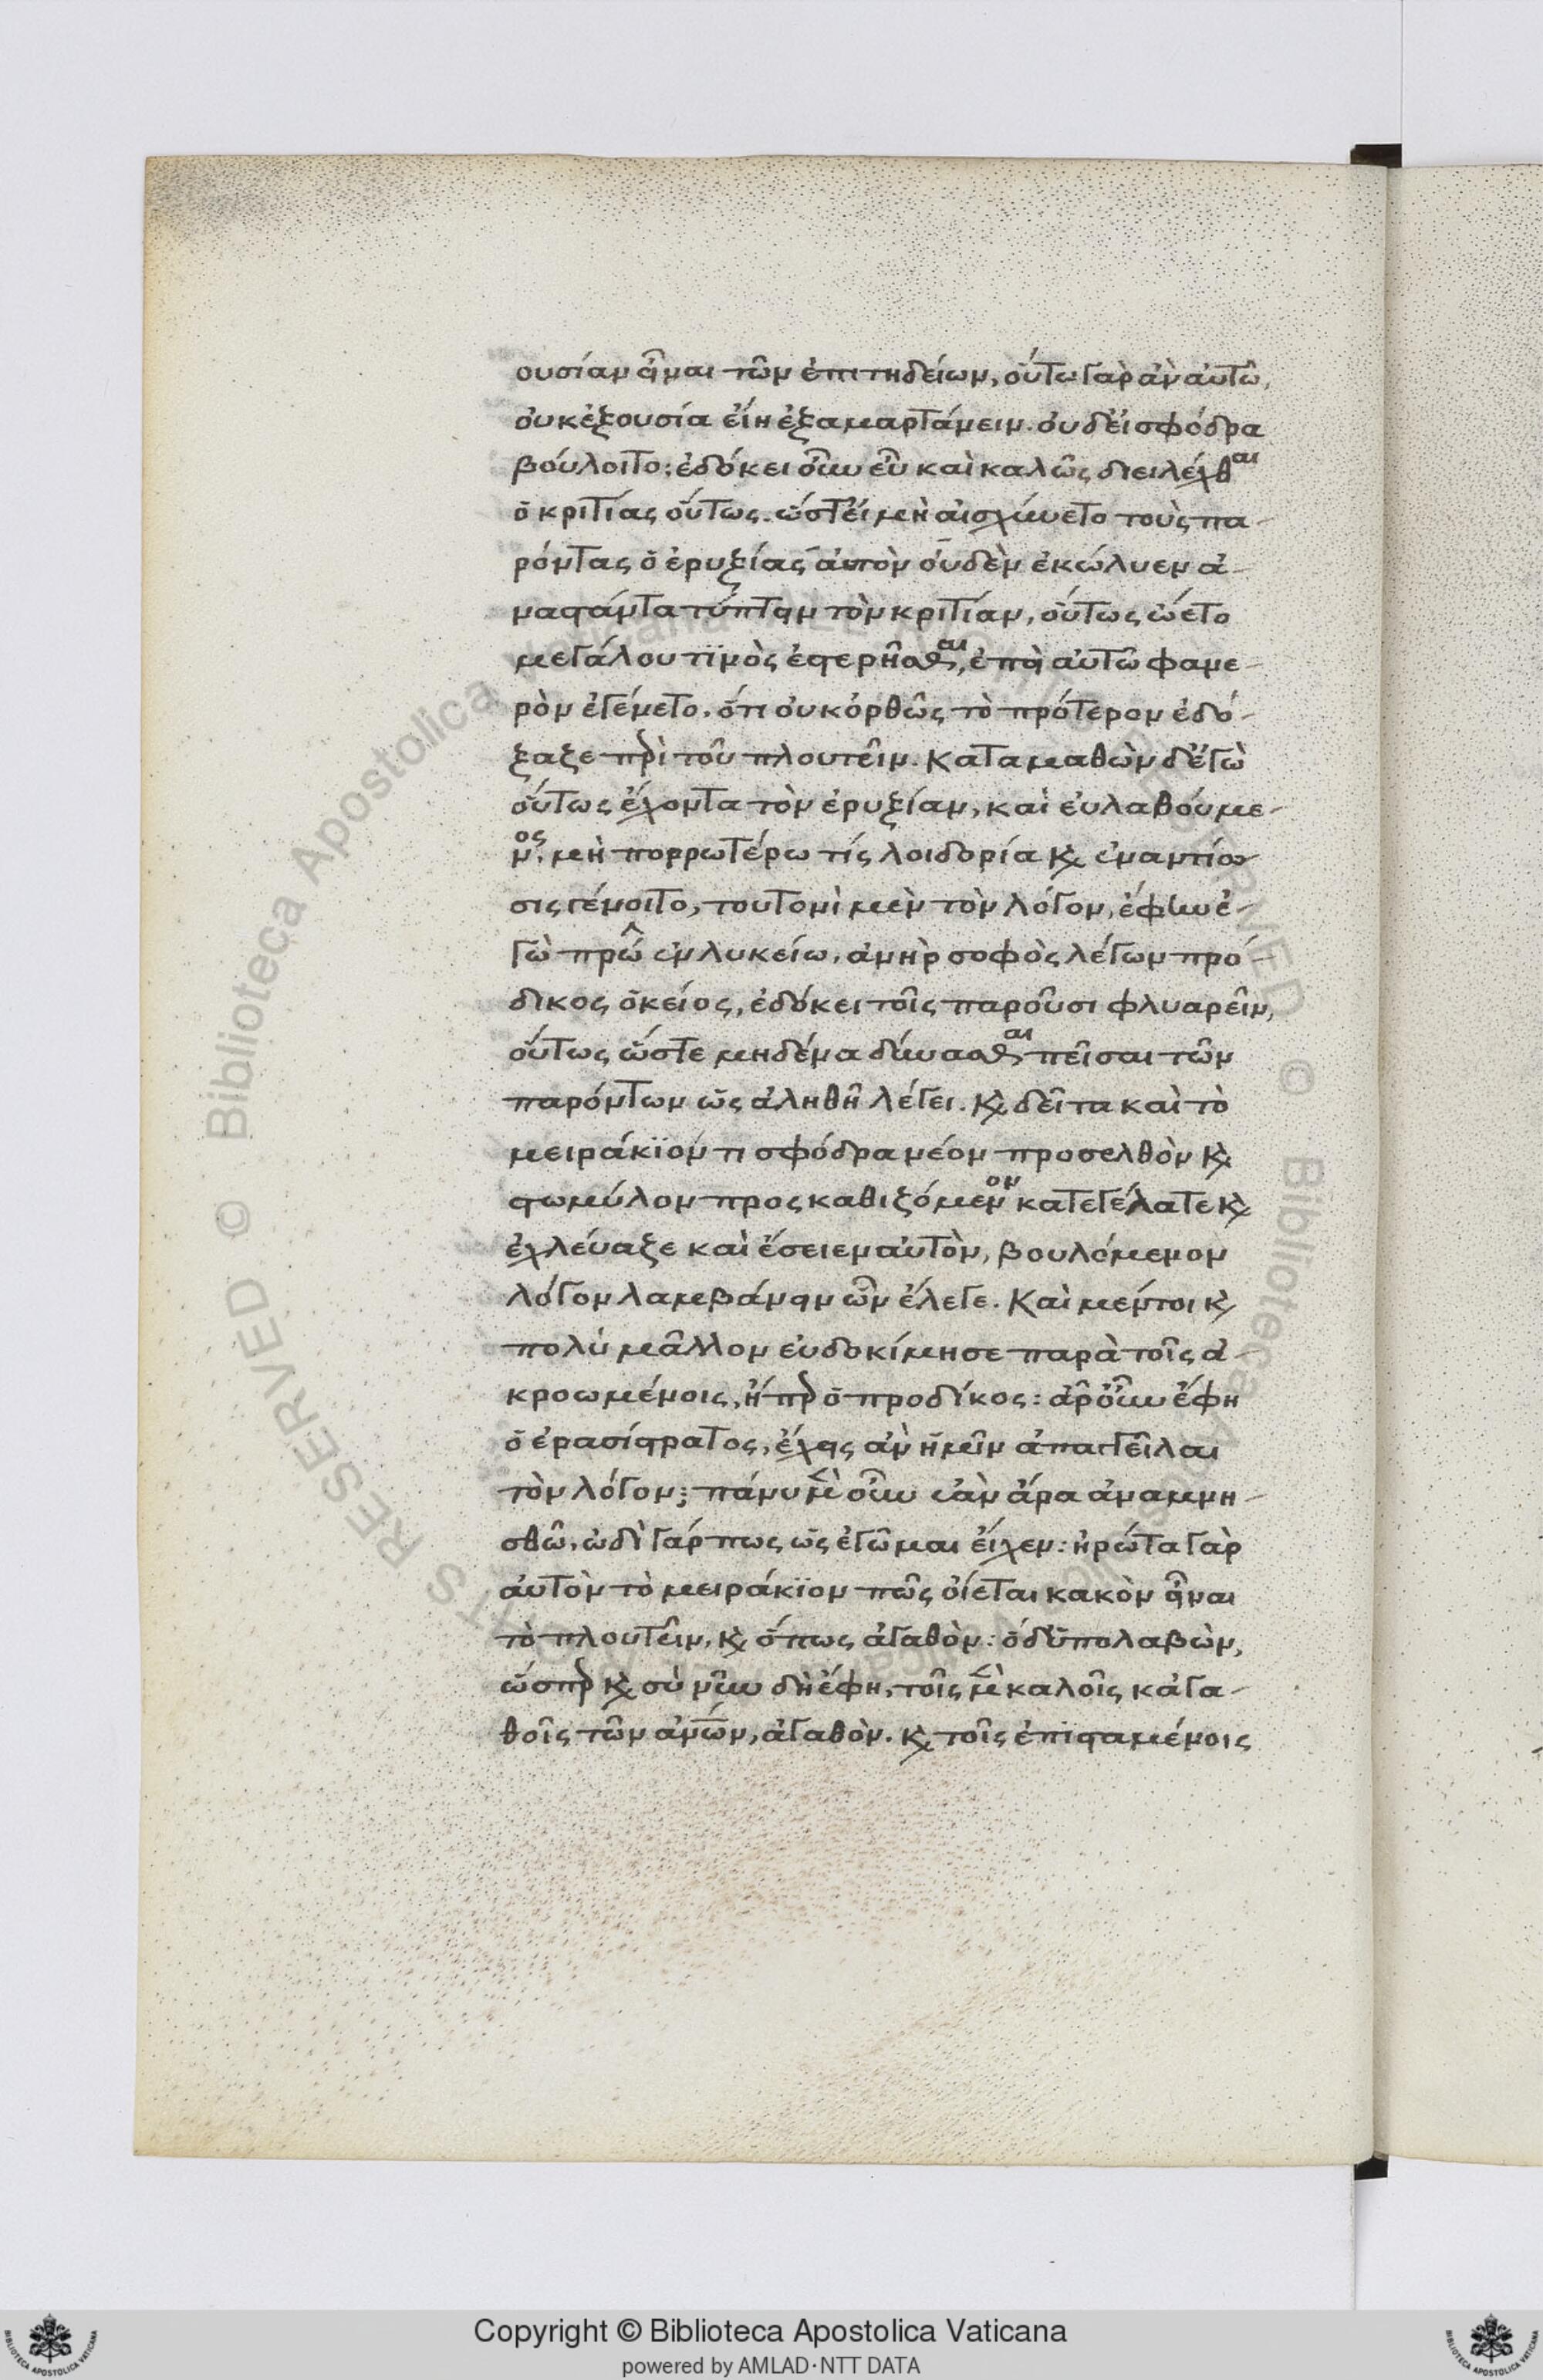 ουσίαν εἶναι τῶν ἐπιτηδείων, οὕτω γὰρ ἂν αὐτῶ,
οὐκ ἐξουσία εἴη ἐξαμαρτάνειν. οὐδ' εἰ σφόδρα
βούλοιτο: ἐδόκει οὖν εὖ καὶ καλῶς διειλέχθαι
ὁ κριτίας οὕτως. ὥστ' εἰ μὴ αἰσχύνετο τοὺς πα-
ρόντας ὁ ἐρυξίας αὐτὸν οὐδὲν ἐκώλυεν ἀ-
ναστάντα τύπτειν τὸν κριτίαν, οὕτως ᾤετο
μεγάλου τινὸς ἐστερῆσθαι, ἐπεὶ αὐτῶ φανε-
ρὸν ἐγένετο. ὅτι οὐκ ὀρθῶς τὸ πρότερον ἐδό-
ξαζε περὶ τοῦ πλουτεῖν. Καταμαθὼν δ' ἐγὼ
οὕτως ἔχοντα τὸν ἐρυξίαν, καὶ εὐλαβούμε-
νος. μὴ πορρωτέρω τίς λοιδορία κ̀ ἐναντίω
σις γένοιτο, τουτονὶ μὲν τὸν λόγον, ἔφην ἐ-
γὼ πρώ ἐν λυκείω. ἀνὴρ σοφὸς λέγων πρό-
δικος ὁ κείος, ἐδόκει τοῖς παροῦσι φλυαρεῖν,
οὕτως ὥστε μηδένα δύνασθαι πεῖσαι τῶν
παρόντων ὡς ἀληθῆ λέγει. κ̀ δεῖτα καὶ τὸ
μειράκϊόν τι σφόδρα νέον προσελθὸν κ̀
στωμύλον προς καθιζόμενον κατεγέλατε κ̀
ἐχλεύαζε καὶ ἔσειεν αὐτὸν, βουλόμενον
λόγον λαμβάνειν ὧν ἔλεγε. Καὶ μέντοι κ̀
πολὺ μᾶλλον εὐδοκίμησε παρὰ τοῖς ἀ-
κροωμένοις, ἤπερ ὁ προδίκος: ἆρ' οὖν ἔφη
ὁ ἐρασίστρατος, ἔχεις ἂν ἡμῖν ἀπαγγεῖλαι
τὸν λόγον; πάνυ μὲν οὖν ἐὰν ἄρα ἀναμνη-
σθῶ. ὡδὶ γάρ πως ὡς ἐγῶμαι εἶχεν: ἠρώτα γὰρ
αὐτὸν τὸ μειράκϊον πῶς οἴεται κακὸν εἶναι
τὸ πλουτεῖν. κ̀ ὅπως ἀγαθὸν: ὁ δ' ὑπολαβὼν,
ὥσπερ κ̀ σὺ νῦν δὴ ἔφη, τοῖς μὲν καλοῖς κἀγα-
θοῖς τῶν ἀνων, ἀγαθὸν. κ̀ τοῖς ἐπισταμένοις
Copyright © Biblioteca Apostolica Vaticana
powered by AMLAD·NTT DATA